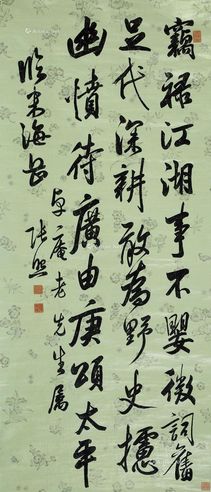 竊祿江湖事不嬰微詞舊
足代深耕敢為野史攄
幽憤待廣由庚頌太平
臨米海岳
卓庵老先生属
張照